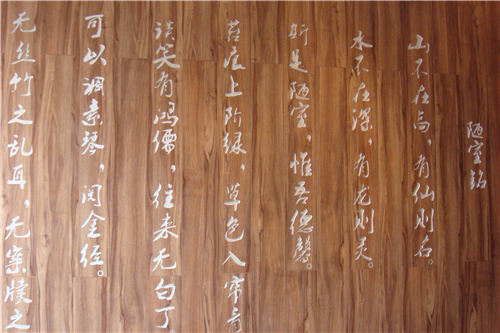 陋室铭
山不在高，有仙则名。
水不在深，有龙则灵。
斯是陋室，惟吾德馨。
苔痕上阶绿，草色入帘青
谈笑有鸿儒，往来无白丁。
可以调素琴，阅金经。
无丝竹之乱耳，无案牍之